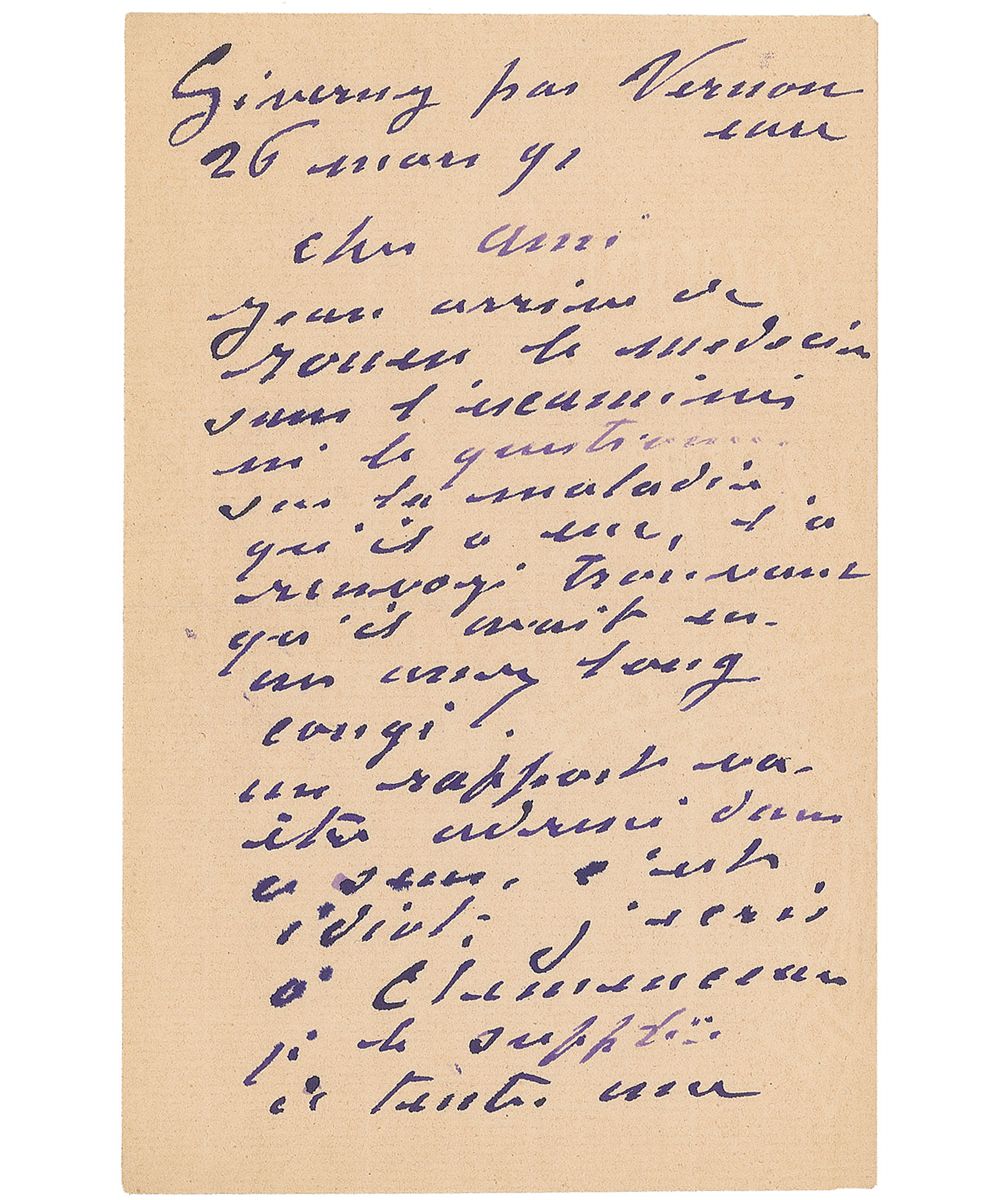 Giverny par Vernon
eure
26 mars 91
cher ami
Jean arrive de
rouen le medecin
sans l'escaminer
ni le questionner
sur la maladie
qu'il a eue, l'a
renvoyé trouvant
qu'il avait eu
un assez long
congé.
un rapport va
être adressé dans
ce sens. c'est
idiot; j'ecris
à Clemenceau
je le supplie
de tenter une